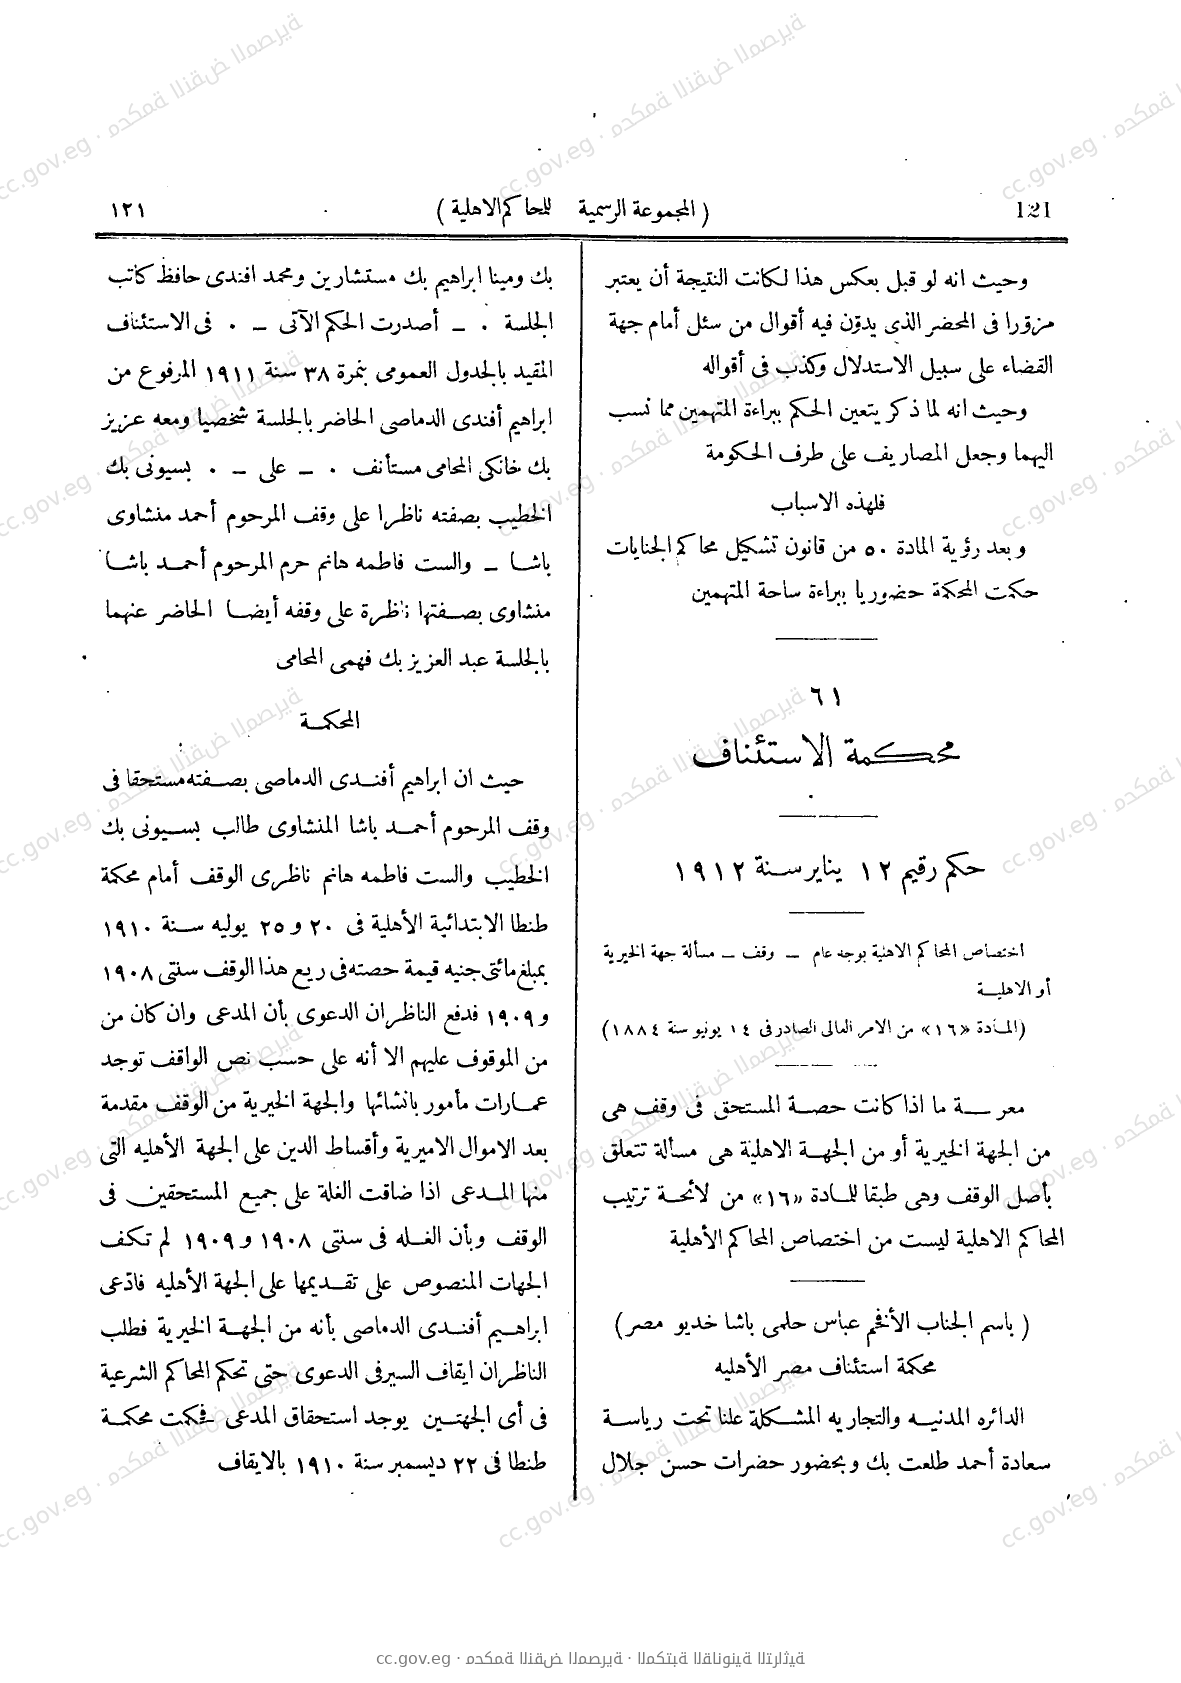 121
( المجموعة الرسمية للمحاكم الاهلية )
١٢١
وحيث انه لو قبل بعكس هذا لكانت النتيجة أن يعتبر
مزورا فى المحضر الذى يدوّن فيه أقوال من سئل أمام جهة
القضاء على سبيل الاستدلال وكذب فى أقواله
وحيث انه لما ذكر يتعين الحكم ببراءة المتهمين مما نسب
اليهما وجعل المصاريف على طرف الحكومة
فلهذه الاسباب
وبعد رؤية المادة ٥٠ من قانون تشكيل محاكم الجنايات
حكمت المحكمة حضوريا ببراءة ساحة المتهمين
٦١
محكمة الاستئناف
حكم رقيم ١٢ يناير سنة ١٩١٢
اختصاص المحاكم الاهلية بوجه عام ــ وقف ــ مسألة جهة الخيرية
أو الاهلية
(المادة «١٦» من الامر العالى الصادر فى ١٤ يونيو سنة ١٨٨٤)
معرفة ما اذا كانت حصة المستحق فى وقف هى
من الجهة الخيرية أو من الجهة الاهلية هى مسألة تتعلق
بأصل الوقف وهى طبقا للمادة «١٦» من لائحة ترتيب
المحاكم الاهلية ليست من اختصاص المحاكم الأهلية
( باسم الجناب الأفخم عباس حلمى باشا خديو مصر )
محكمة استئناف مصر الأهليه
الدائره المدنيه والتجاريه المشكلة علنا تحت رياسة
سعادة أحمد طلعت بك وبحضور حضرات حسن جلال
بك ومينا ابراهيم بك مستشارين ومحمد افندى حافظ كاتب
الجلسة . ــ أصدرت الحكم الآتى ــ . فى الاستئناف
المقيد بالجدول العمومى بنمرة ٣٨ سنة ١٩١١ المرفوع من
ابراهيم أفندى الدماصى الحاضر بالجلسة شخصيا ومعه عزيز
بك خانكى المحامى مستأنف . ــ على ــ . بسيونى بك
الخطيب بصفته ناظرا على وقف المرحوم أحمد منشاوى
باشا ــ والست فاطمه هانم حرم المرحوم أحمد باشا
منشاوى بصفتها ناظرة على وقفه أيضا الحاضر عنهما
بالجلسة عبد العزيز بك فهمى المحامى
المحكمة
حيث ان ابراهيم أفندى الدماصى بصفته مستحقا فى
وقف المرحوم أحمد باشا المنشاوى طالب بسيونى بك
الخطيب والست فاطمه هانم ناظرى الوقف أمام محكمة
طنطا الابتدائية الأهلية فى ٢٠ و ٢٥ يوليه سنة ١٩١٠
بمبلغ مائتى جنيه قيمة حصته فى ريع هذا الوقف سنتى ١٩٠٨
و ١٩٠٩ فدفع الناظران الدعوى بأن المدعى وان كان من
من الموقوف عليهم الا أنه على حسب نص الواقف توجد
عمارات مأمور بانشائها والجهة الخيرية من الوقف مقدمة
بعد الاموال الاميرية وأقساط الدين على الجهة الأهليه التى
منها المدعى اذا ضاقت الغلة على جميع المستحقين فى
الوقف وبأن الغله فى سنتى ١٩٠٨ و ١٩٠٩ لم تكف
الجهات المنصوص على تقديمها على الجهة الأهليه فادّعى
ابراهيم أفندى الدماصى بأنه من الجهة الخيرية فطلب
الناظران ايقاف السير فى الدعوى حتى تحكم المحاكم الشرعية
فى أى الجهتين يوجد استحقاق المدعى فحكمت محكمة
طنطا فى ٢٢ ديسمبر سنة ١٩١٠ بالايقاف
cc.gov.eg · محكمة النقض المصرية · المكتبة القانونية التراثية